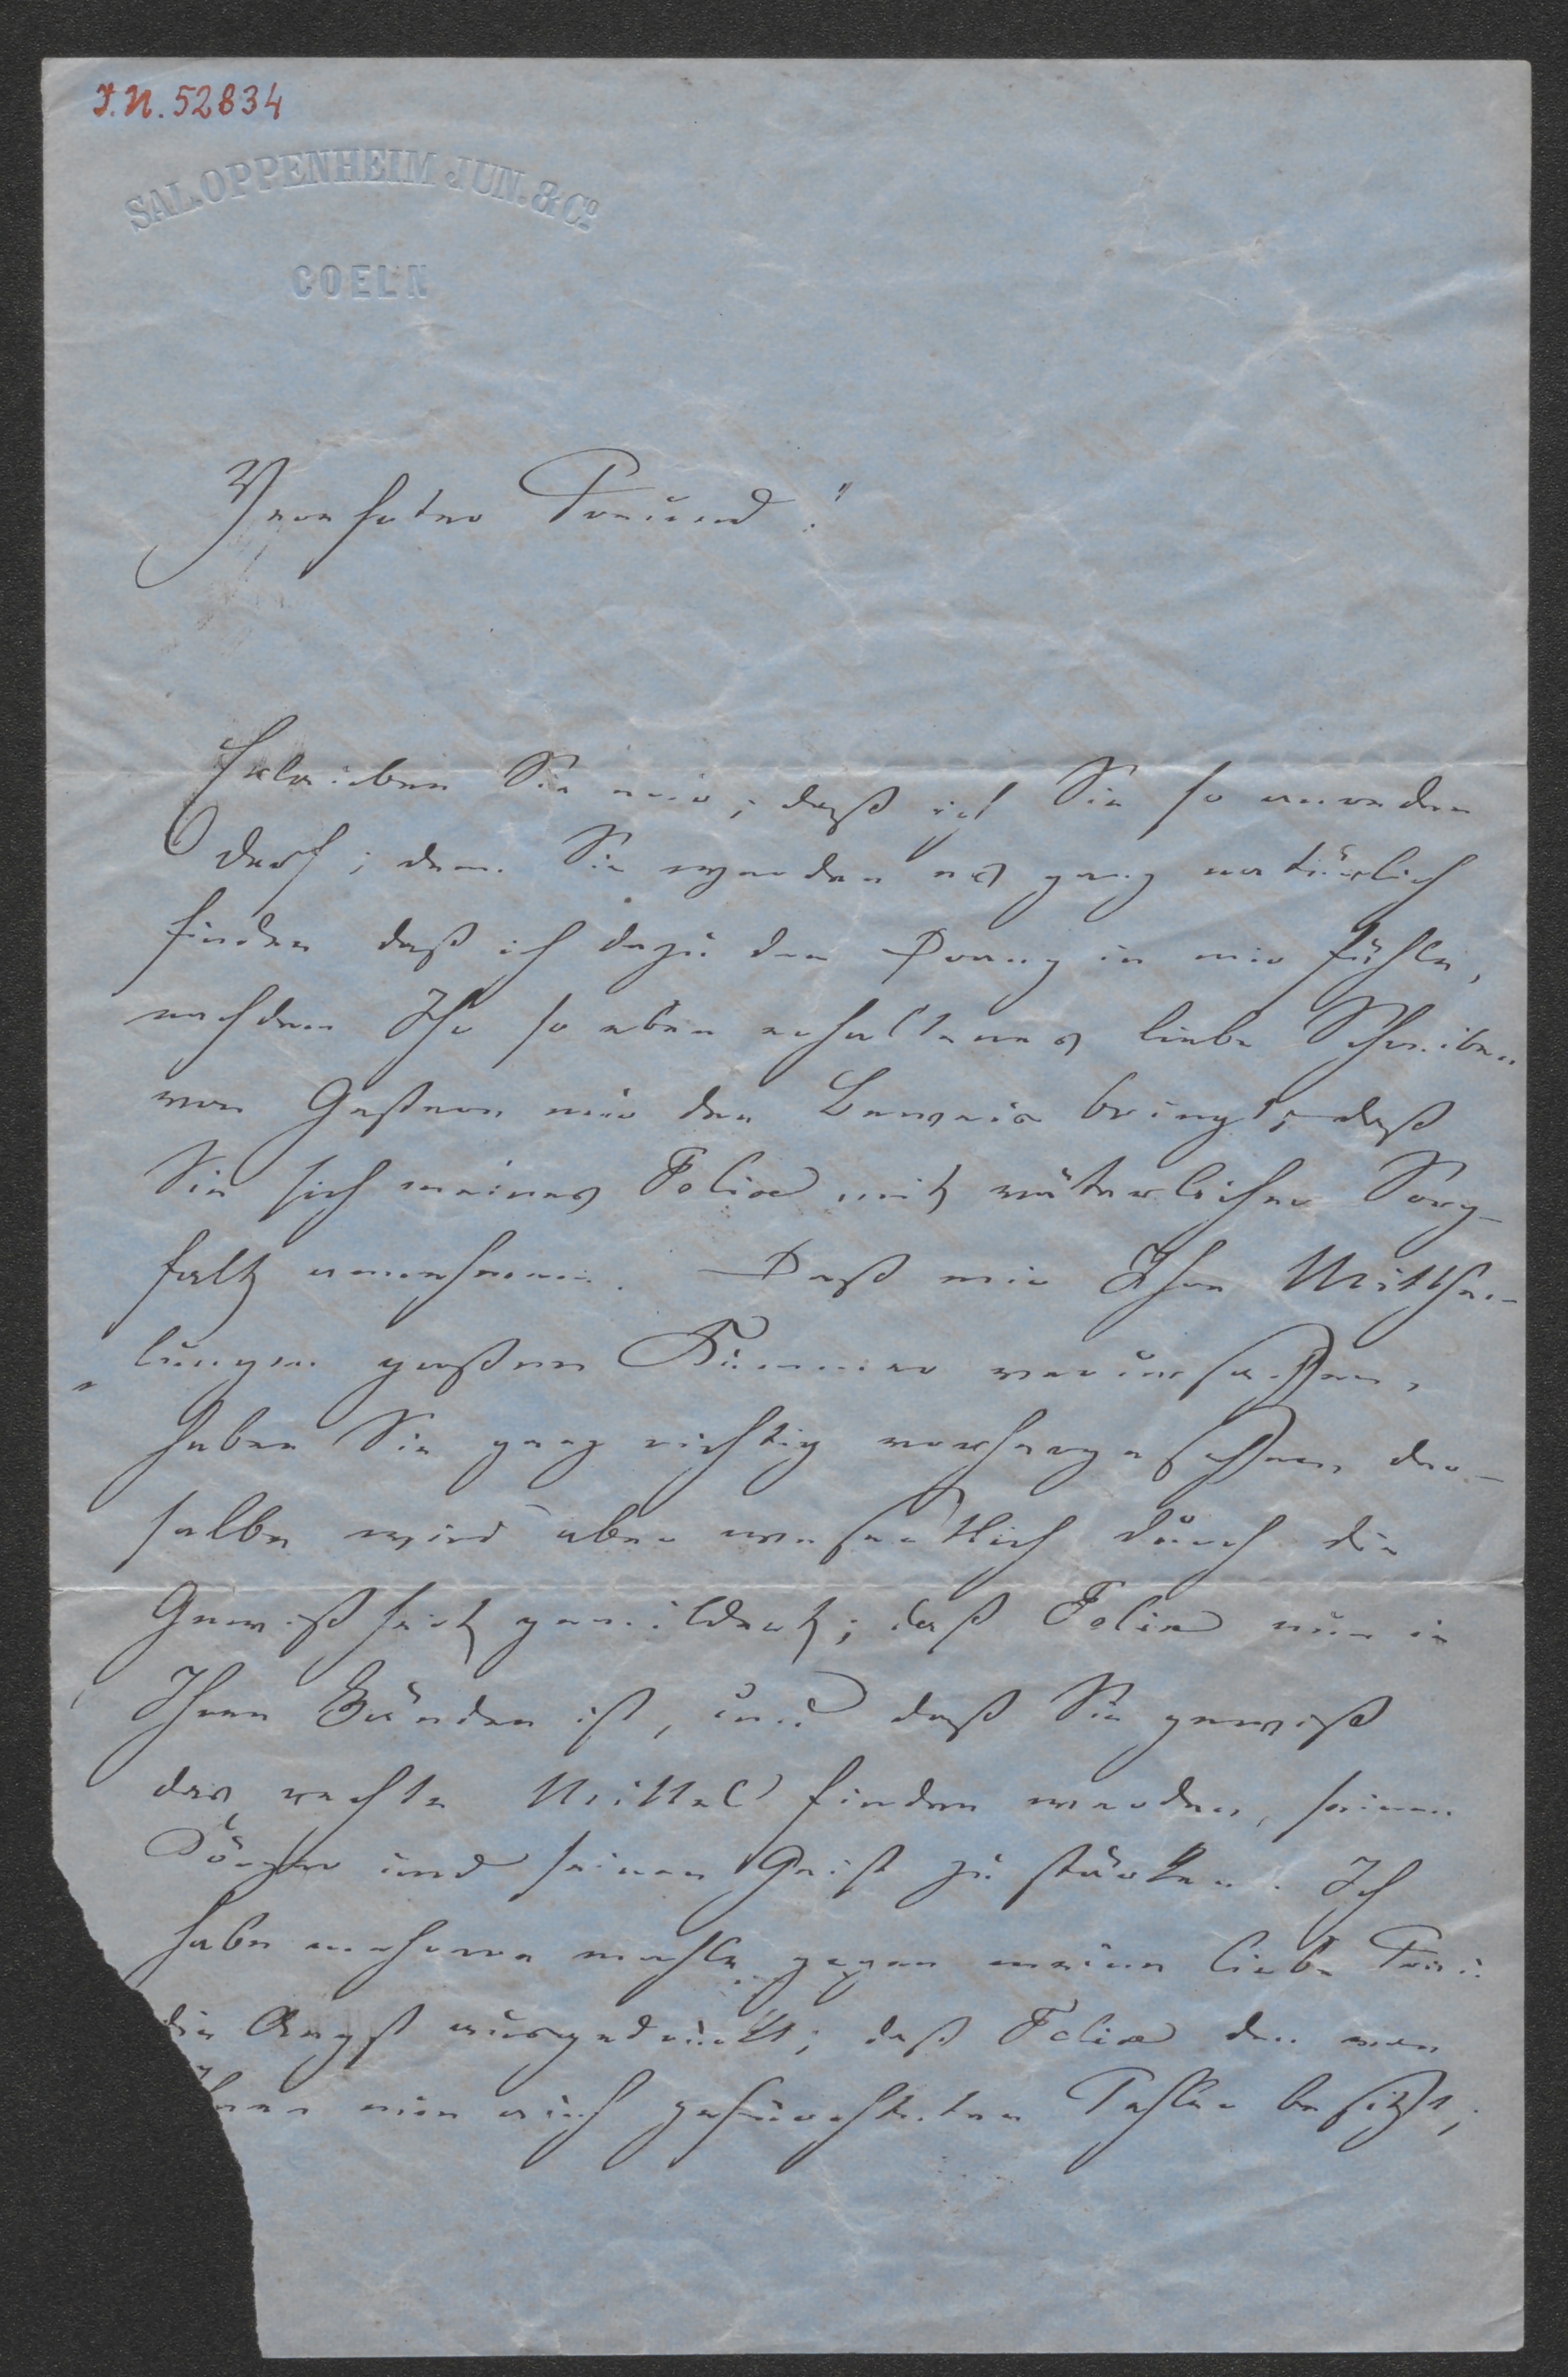 I.N. 52834
SAL. OPPENHEIM JUN. & Cº
COELN
Verehrter Freund!
Erlauben Sie mir, daß ich Sie so anreden
darf; denn Sie werden es ganz natürlich
finden daß ich dazu den Drang in mir fühle,
nachdem Ihr so eben erhaltenes liebe Schreiben
von Gestern mir den Beweis bringt, daß
Sie sich meines Felix mit väterlicher Sorg-
falt annehmen. Daß mir Ihre Mitthei-
lungen großen Kummer verursachen,
haben Sie ganz richtig vorhergesehen, der-
selbe wird aber wesentlich durch die
Gewißheit gemildert; daß Felix nun in
Ihren Händen ist, und daß Sie gewiß
das rechte Mittel finden werden, seinen
Körper und seinen Geist zu stärken. Ich
habe mehrere mahle gegen meine liebe Frau
die Angst ausgedrückt; daß Felix den von
Ihnen nun auch gefürchteten Fehler besitzt;